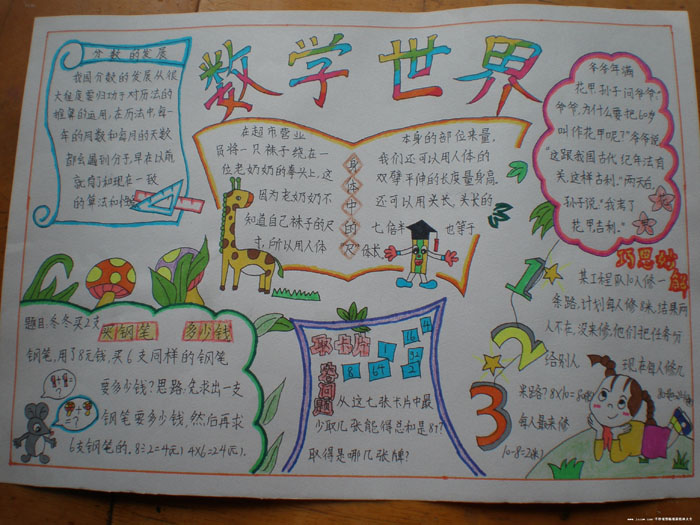 数学世界
分数的发展
我国分数的发展从很
大程度要归功于对历法的
推算的运用,在历法中每一
年的周数和每月的天数
都会遇到分子,早在以前
就有了和现在一致
的算法和
在超市营业
员将一只袜子绕在一
位老奶奶的拳头上,这
因为老奶奶不
知道自己袜子的尺
寸,所以用人体
身体中的“尺”
本身的部位来量。
我们还可以用人体的
双臂平伸的长度量身高。
还可以用头长,头长的
七倍半 也等于
体长
爷爷年满
花甲,孙子问爷爷:“
爷爷,为什么要把60岁
叫作花甲呢?”爷爷说:
“这跟我国古代纪年法有
关,这样吉利。”两天后,
孙子说:“我考了
花甲吉利。”
题目:冬冬买2支
买钢笔 多少钱
钢笔,用了8元钱,买6支同样的钢笔
要多少钱?思路:先求出一支
钢笔要多少钱,然后再求
6支钢笔的。8÷2=4(元) 4×6=24(元)。
取卡片
问题
1 16 4
8 64 2 32
从这七张卡片中最
少取几张能得总和是87?
取得是哪几张牌?
巧思妙解
某工程队10人修一
条路,计划每人修8米,结果两
人不在,没来修,他们把任务分
给别人 现在每人修几
米路? 8×10=80(米)
每人最来修
10-8=2(米)
1
2
3